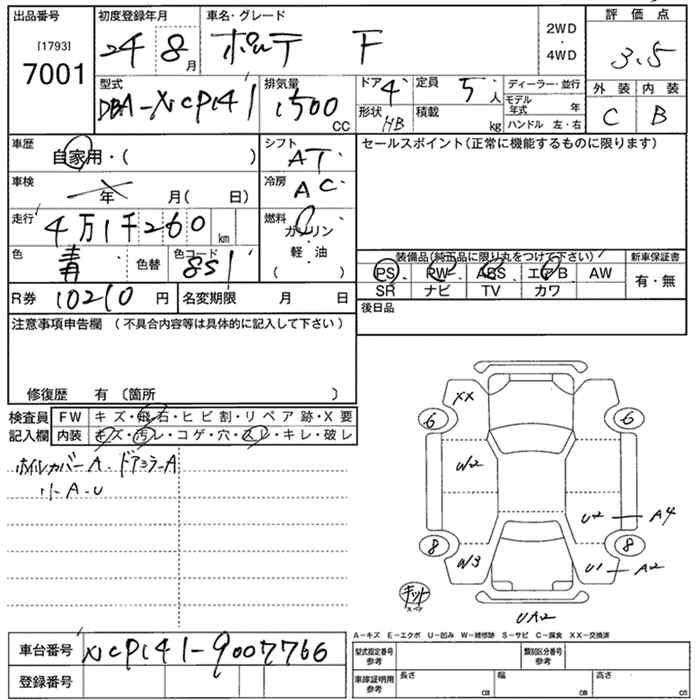 出品番号 初度登録年月 車名・グレード 評価点
[1793] 7001 24 8月 ポルテ F 2WD・4WD 3.5
型式 排気量 ドア 4 定員 5人 ディーラー・並行 外装 内装
DBA-NCP141 1500CC 形状 HB 積載 kg モデル年式 年 C B
ハンドル 左・右
車歴 自家用・( ) シフト AT セールスポイント(正常に機能するものに限ります)
車検 年 月( 日) 冷房 AC
走行 4万1千260km 燃料 ガソリン
軽・油
( )
色 青 色替 色コード 8S1 装備品(純正品に限り丸をつけて下さい) 新車保証書
PS PW ABS エアB AW 有・無
R券 10210円 名変期限 月 日 SR ナビ TV カワ
注意事項申告欄 (不具合内容等は具体的に記入して下さい) 後日品
修復歴 有 〔箇所 〕
検査員 FW キズ・飛石・ヒビ割・リペア跡・X要
記入欄 内装 キズ・汚レ・コゲ・穴・スレ・キレ・破レ
ホイルカバーA. ドアミラーA
小A.U
XX
6 6
W2
U2 A4
8 8
W3 U1 A2
キット
スペア
UA2
A-キズ E-エクボ U-凹み W-補修跡 S-サビ C-腐食 XX-交換済
車台番号 NCP141-9007766 型式指定番号 参考 類別区分番号 参考
登録番号 車庫証明用 参考 長さ cm 幅 cm 高さ cm